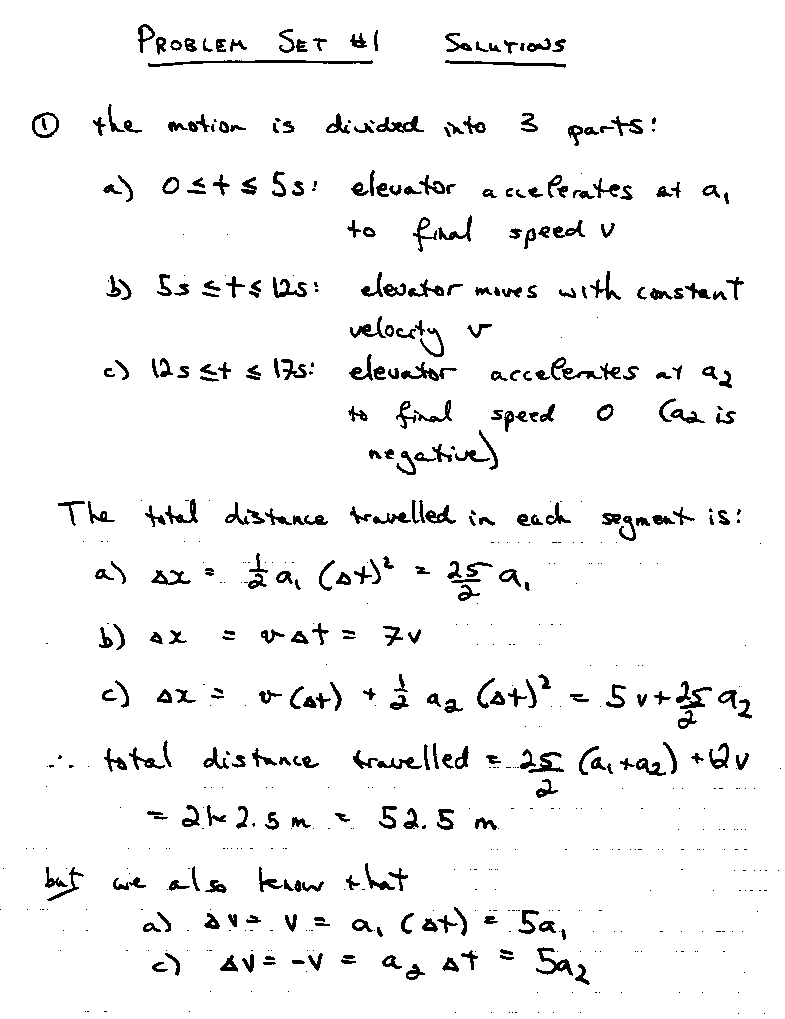 PROBLEM SET #1 SOLUTIONS
① the motion is divided into 3 parts:
a) 0 ≤ t ≤ 5s: elevator accelerates at a₁
to final speed v
b) 5s ≤ t ≤ 12s: elevator moves with constant
velocity v
c) 12s ≤ t ≤ 17s: elevator accelerates at a₂
to final speed 0 (a₂ is
negative)
The total distance travelled in each segment is:
a) Δx = ½ a₁ (Δt)² = 25/2 a₁
b) Δx = v Δt = 7v
c) Δx = v (Δt) + ½ a₂ (Δt)² = 5v + 25/2 a₂
∴ total distance travelled = 25/2 (a₁+a₂) + 12v
= 21 × 2.5 m = 52.5 m
but we also know that
a) Δv = v = a₁ (Δt) = 5a₁
c) Δv = -v = a₂ Δt = 5a₂